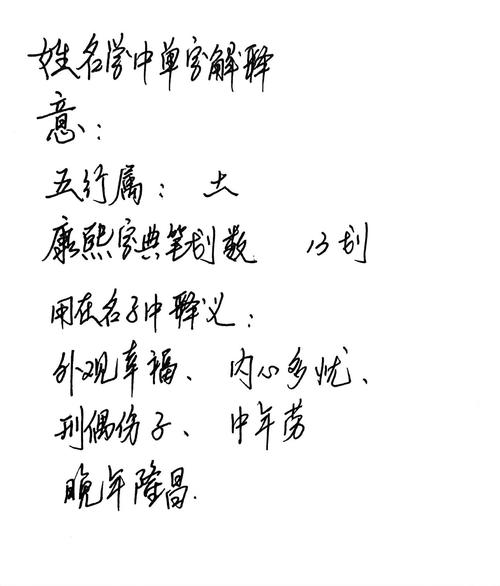 姓名学中单字解释
意：
五行属：  土
康熙字典笔划数  13划
用在名子中释义：
外观幸福、 内心多忧、
刑偶伤子、 中年劳
晚年隆昌.